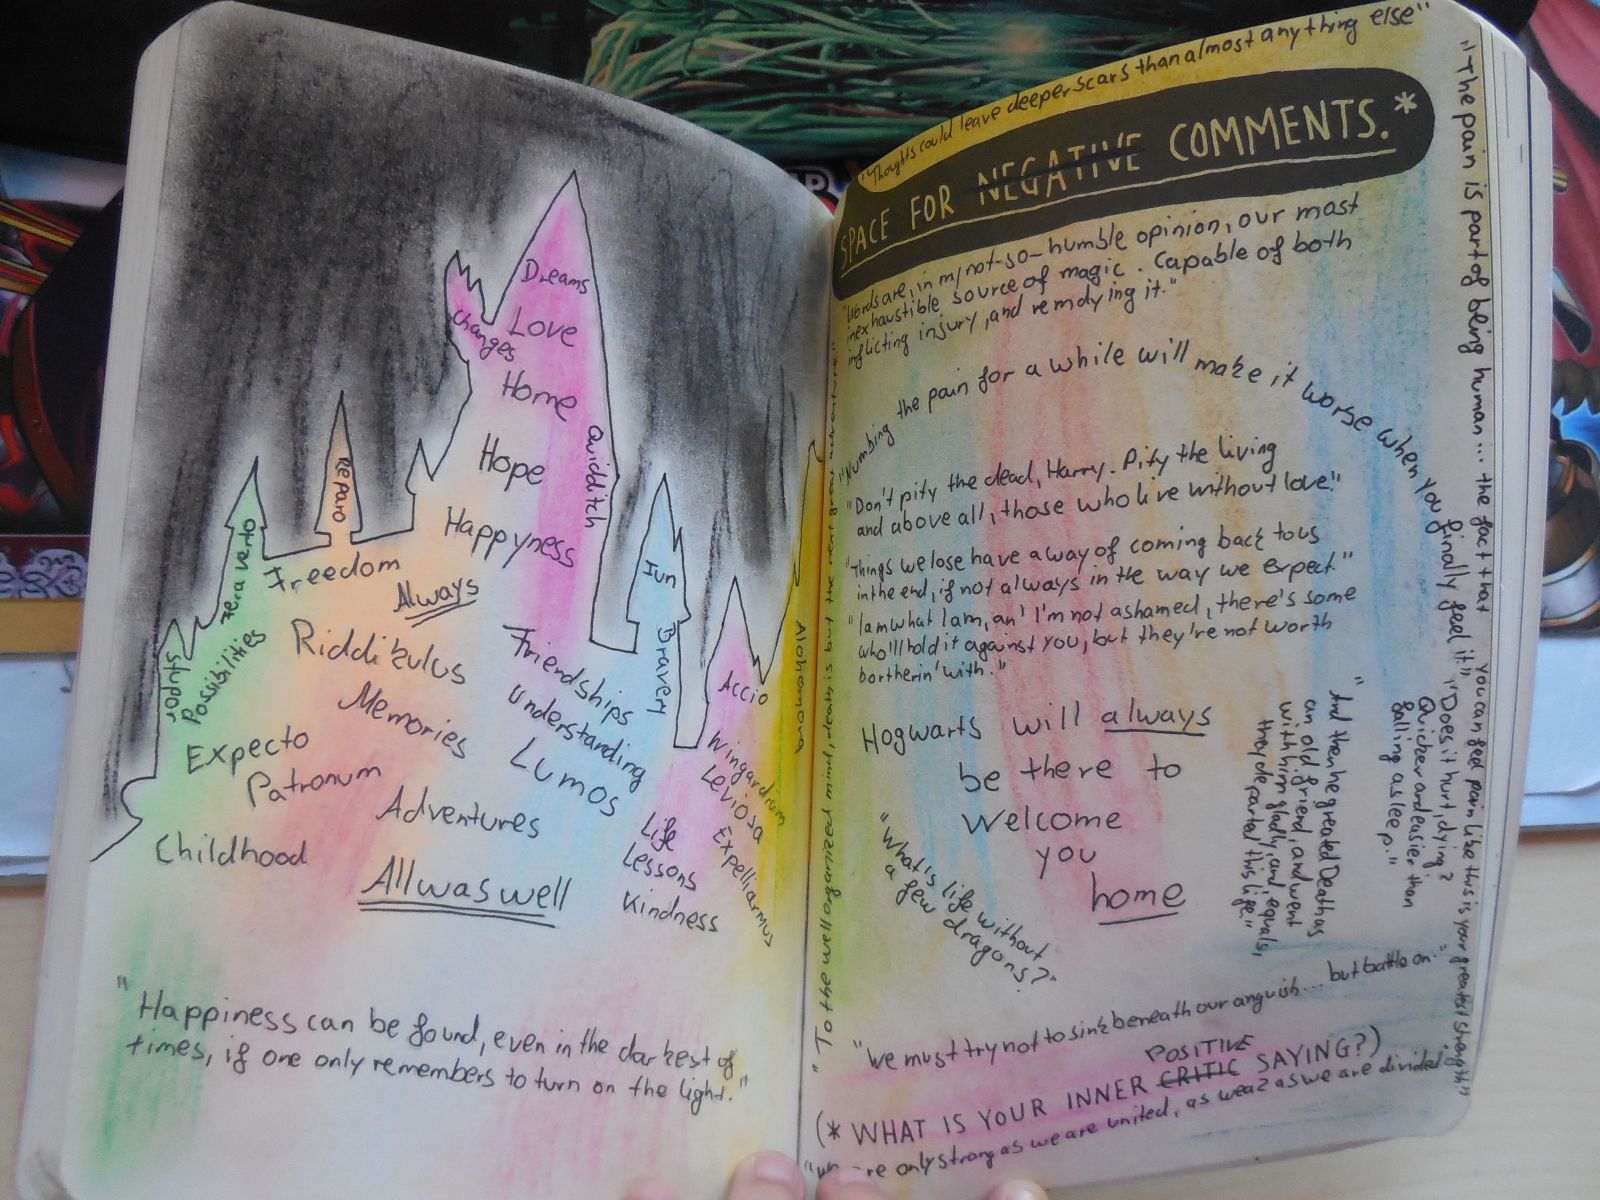 Dreams
Love
Changes
Home
Quidditch
Hope
Happyness
Reparo
Fera verto
Freedom
Always
Fun
Bravery
Stupor
Possibilities
Riddikulus
Friendships
Understanding
Accio
Alohomora
Memories
Expecto
Patronum
Lumos
Wingardium
Leviosa
Adventures
Life
Lessons
Expelliarmus
Childhood
All was well
Kindness
"Happiness can be found, even in the darkest of
times, if one only remembers to turn on the light."
"To the well organized mind, death is but the next great adventure."
"Thoughts could leave deeper scars than almost anything else"
SPACE FOR NEGATIVE COMMENTS.*
"Words are, in my not-so-humble opinion, our most
inexhaustible source of magic. Capable of both
inflicting injury, and remdying it."
"Numbing the pain for a while will make it worse when you finally feel it."
"Don't pity the dead, Harry. Pity the living
and above all, those who live without love."
"Things we lose have a way of coming back to us
in the end, if not always in the way we expect."
"I am what I am, an' I'm not ashamed, there's some
who'll hold it against you, but they're not worth
bortherin' with."
Hogwarts will always
be there to
welcome
you
home
"What's life without
a few dragons?"
"And then he greated Death as
an old friend, and went
with him gladly, and, equals,
they departed this life."
"Does it hurt, dying?
Quicker and easier than
falling asleep."
"The pain is part of being human... the fact that you can feel pain like this is your greatest strength"
"We must try not to sink beneath our anguish... but battle on."
POSITIVE
(* WHAT IS YOUR INNER CRITIC SAYING?)
are only strong as we are united, as weak as we are divided"